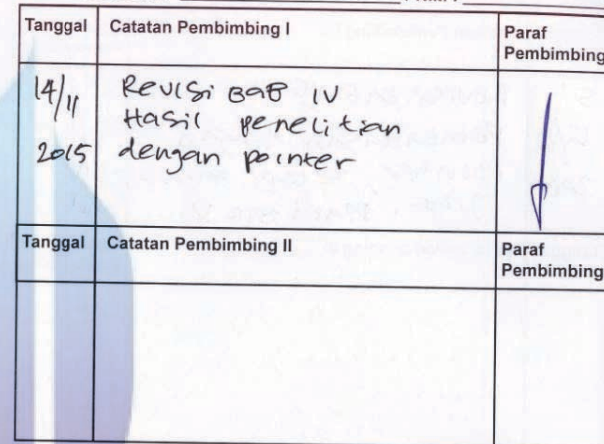 Tanggal Catatan Pembimbing I Paraf Pembimbing
14/11 Revisi BAB IV
Hasil penelitian
2015 dengan pointer
Tanggal Catatan Pembimbing II Paraf Pembimbing